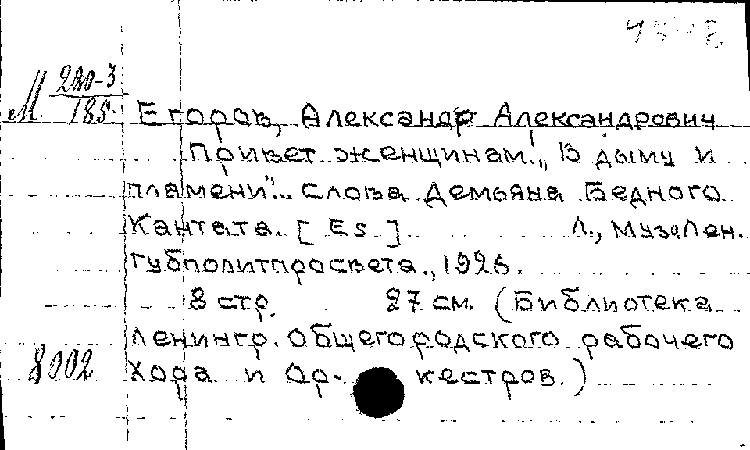 М 220-3
185
Егоров, Александр Александрович
Привет женщинам. „В дыму и
пламени"... Слова Демьяна Бедного
Кантата. [Es] Л., Муз. Лен.
Губполитпросвета., 1926.
8 стр. 27 см. (Библиотека
Ленингр. общегородского рабочего
8002 хора и ор- кестров.)